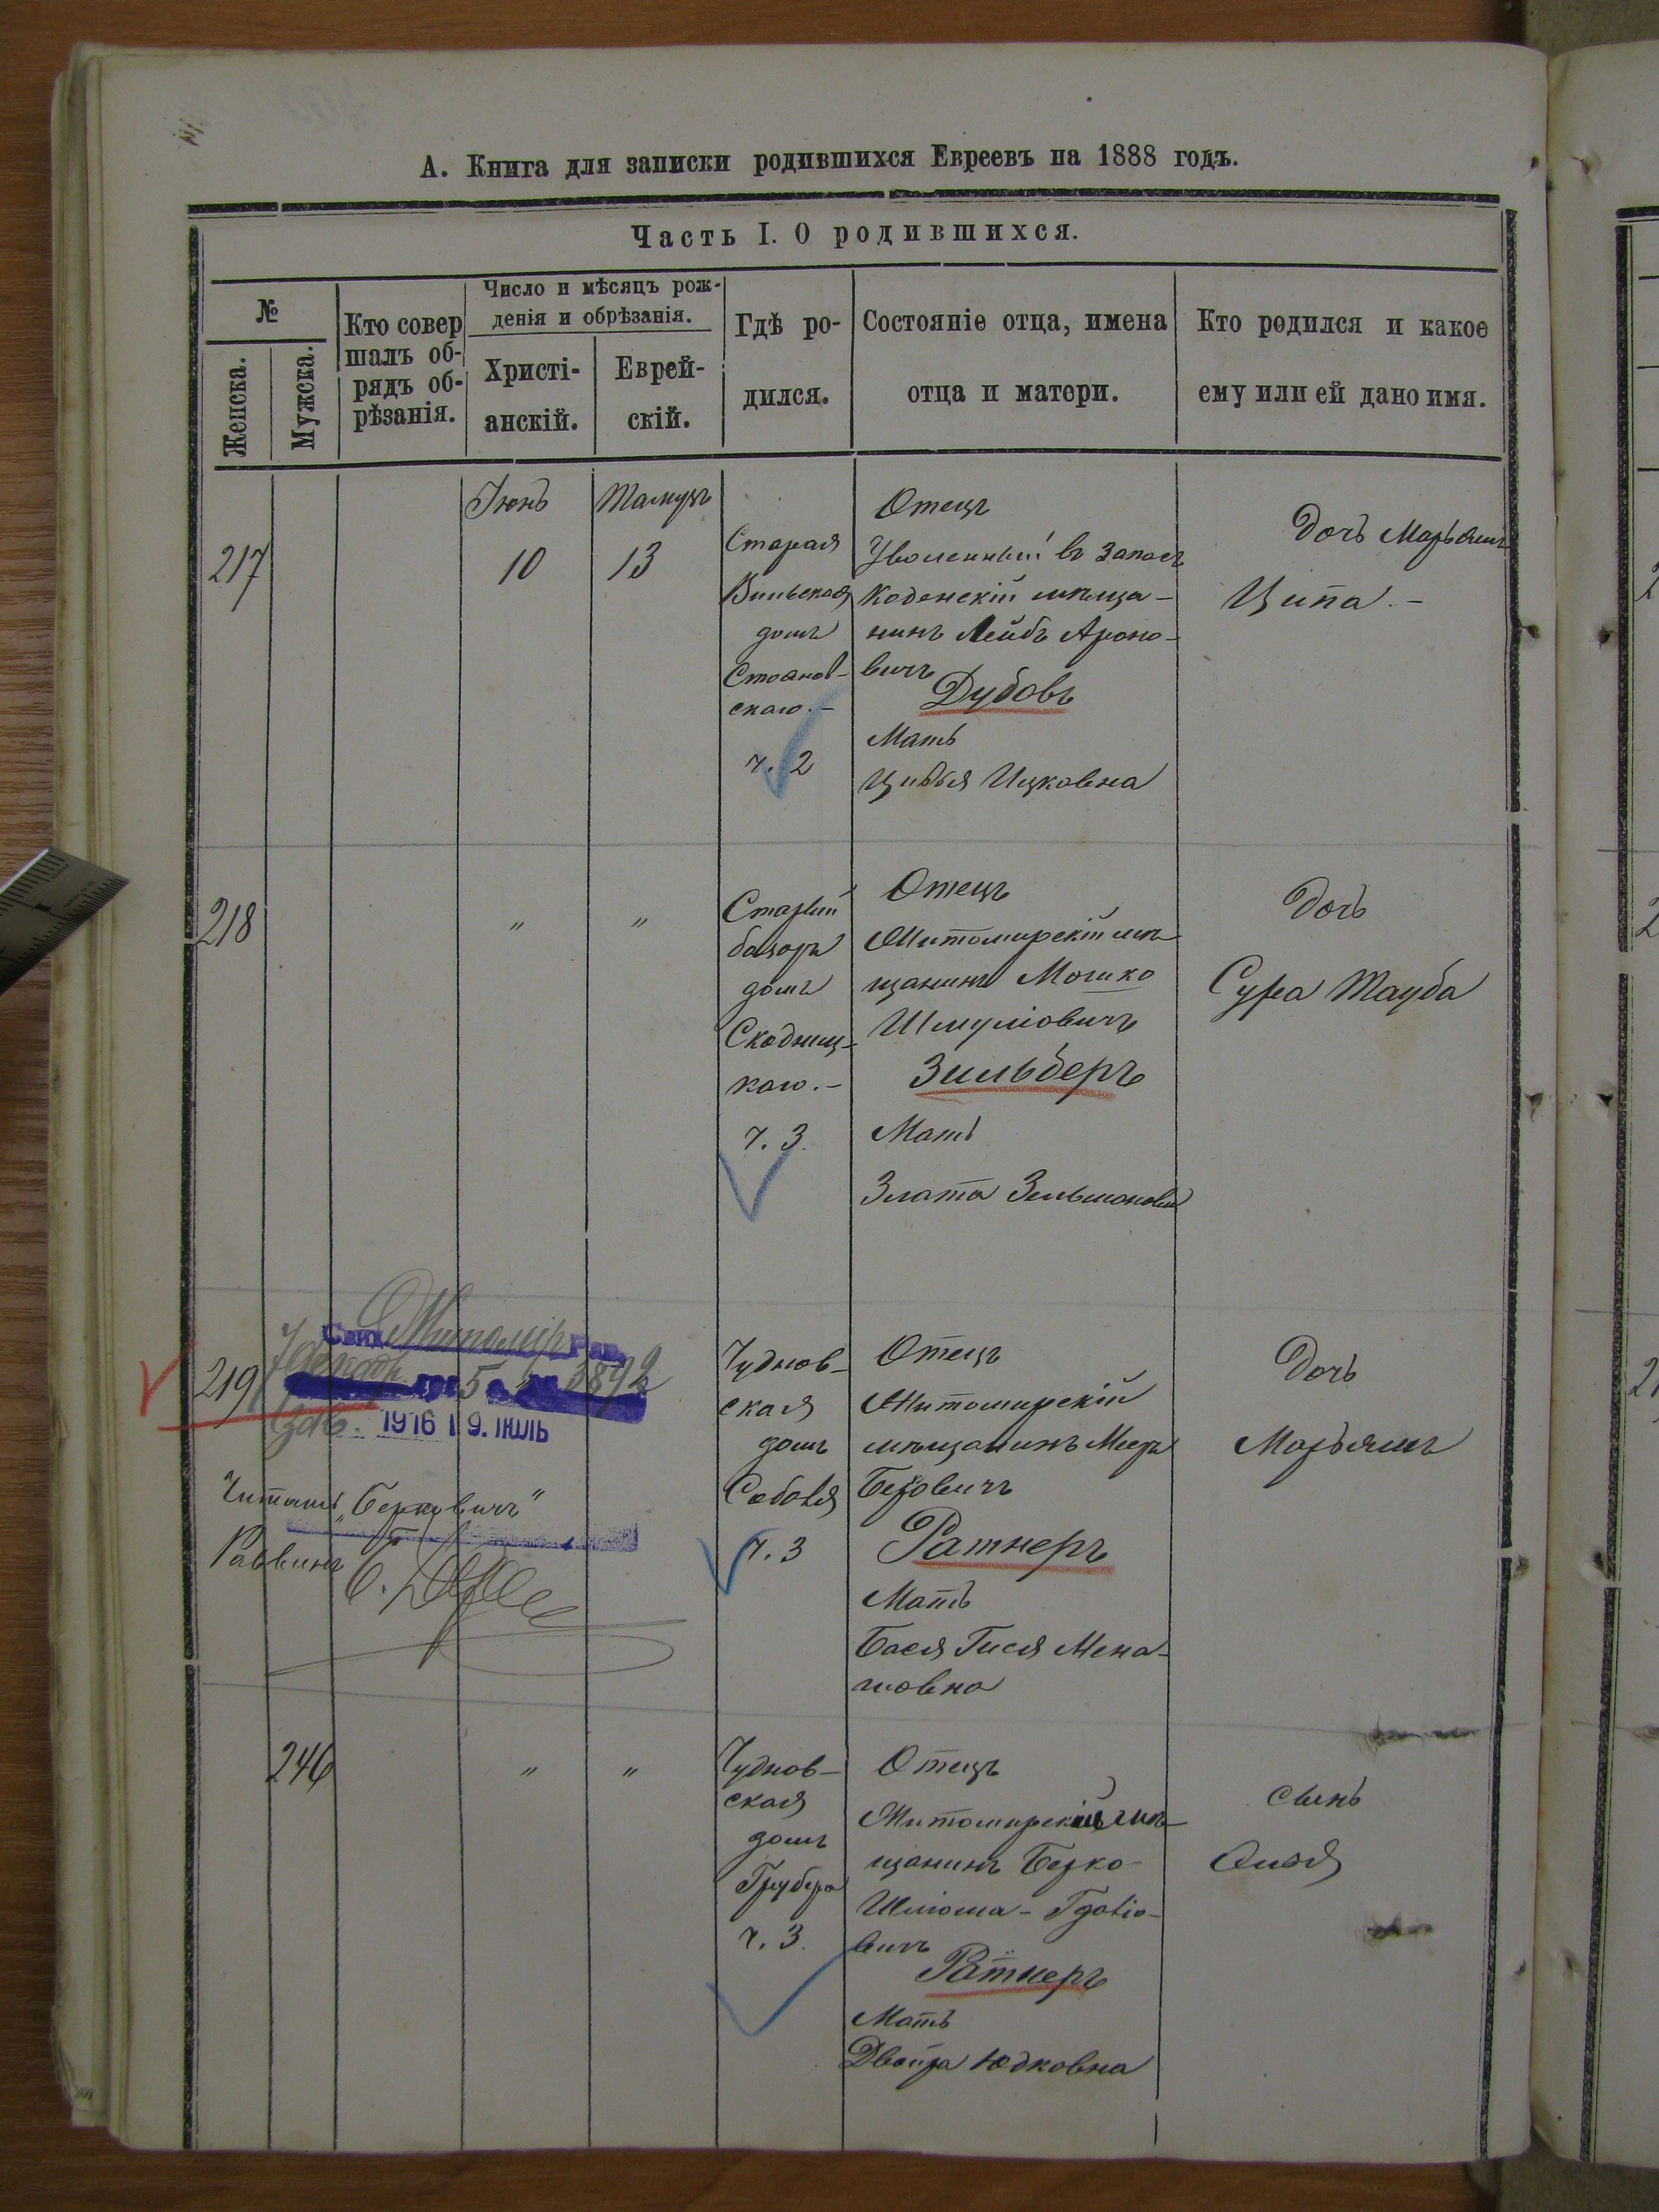 А. Книга для записки родившихся Евреевъ на 1888 годъ.
Часть I. О родившихся.
№
Женска.
Мужска.
Кто совер
шалъ об-
рядъ об-
рѣзанія.
Число и мѣсяцъ рож-
денія и обрѣзанія.
Христі-
анскій.
Еврей-
скій.
Гдѣ ро-
дился.
Состояніе отца, имена
отца и матери.
Кто родился и какое
ему или ей дано имя.
217
Іюнь
10
Тамузъ
13
Старая
Вильская
домъ
скаго.-
ч. 2
Отецъ
Уволенный въ запасъ
Коденскій мѣща-
нинъ Лейбъ Ароно-
вичъ
Дубовъ
Мать
Цивья Ицковна
Дочь Марьямъ
Ципа.-
218
"
"
Старый
базаръ
домъ
Скодниц-
каго.-
ч. 3.
Отецъ
Житомирскій мѣ-
щанинъ Мошко
Шмуліовичъ
Зильберъ
Мать
Злата Зельмановна
Дочь
Сура Тауба
219
Житомір
5
3892
1916 г. 9. ІЮЛЬ
Читать „Берковичъ"
Раввинъ
Чуднов-
ская
домъ
Соболя
ч. 3
Отецъ
Житомирскій
мѣщанинъ Меер
Беровичъ
Ратнеръ
Мать
Бася Гися Мена-
шовна
Дочь
Марьямъ
246
"
"
Чуднов-
ская
домъ
Грубера
ч. 3.
Отецъ
Житомирскій мѣ-
щанинъ Берко-
Шлиома-Гдаліо-
вичъ
Ратнеръ
Мать
Двойра Юдковна
сынъ